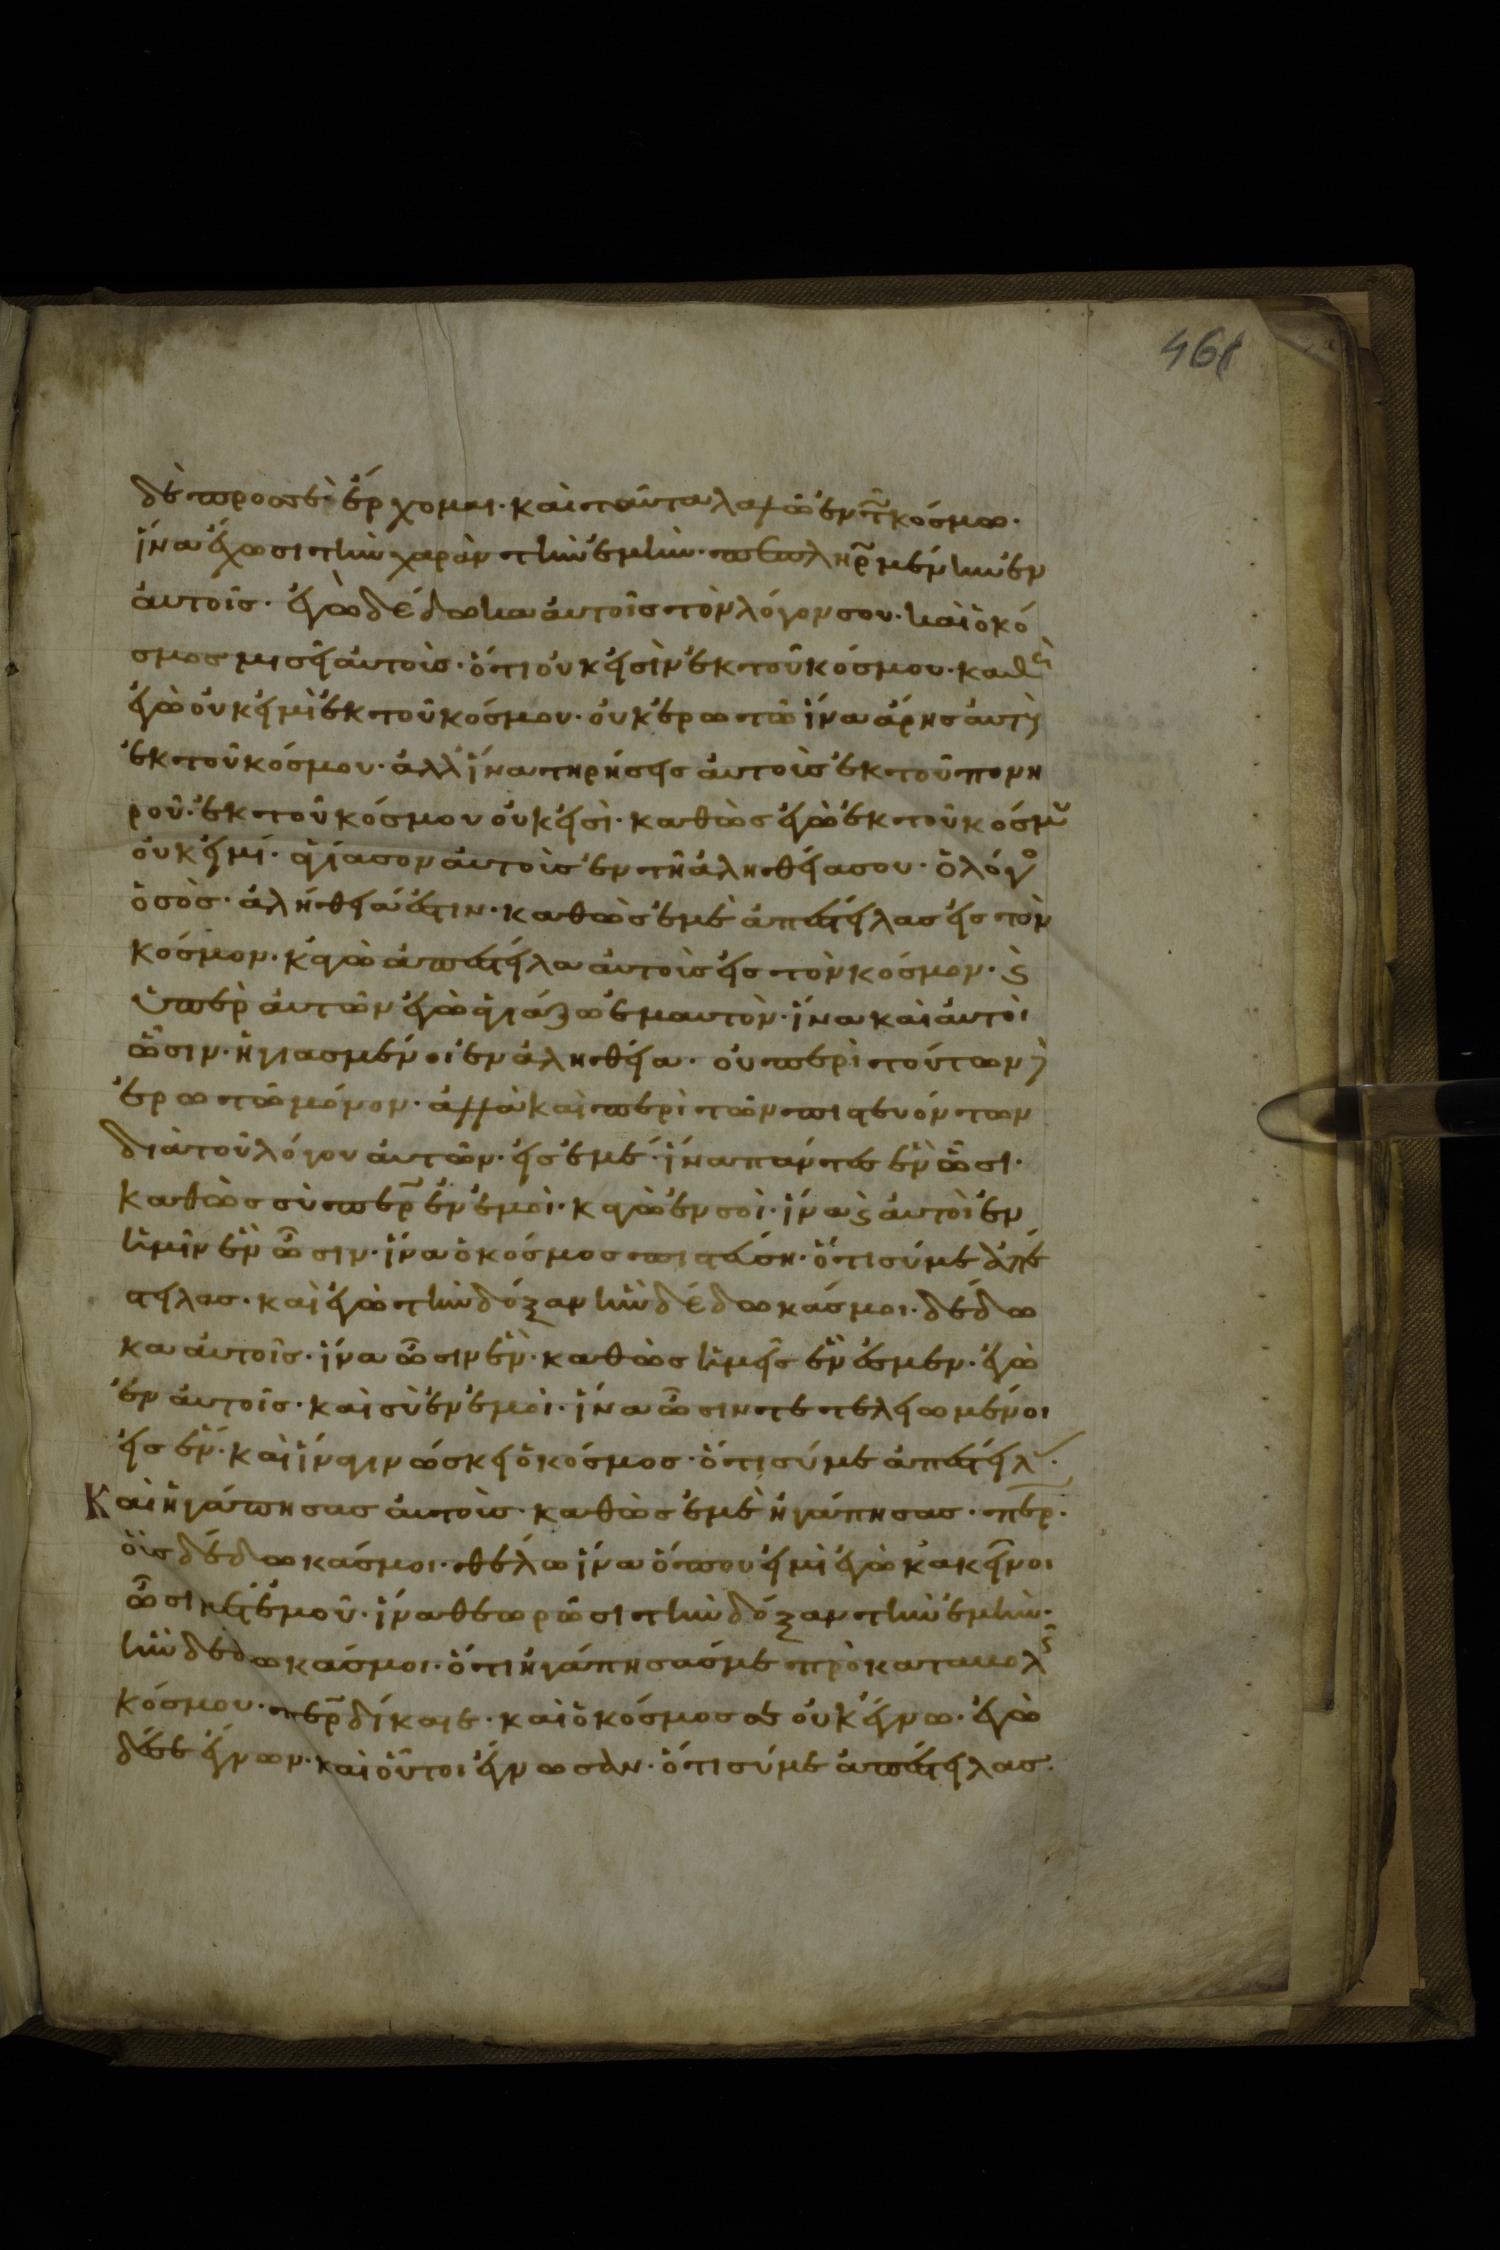 461
δὲ προς σὲ ἔρχομαι· καὶ ταῦτα λαλῶ ἐν τῶ κόσμω·
ἵνα ἔχωσι τὴν χαρὰν τὴν ἐμὴν· πεπληρ̅μένην ἐν
αὐτοῖς· ἐγὼ δέδωκα αὐτοῖς τὸν λόγον σου· καὶ ὁ κό
σμος μισεῖ αὐτοὺς· ὅτι οὐκ εἰσὶν ἐκ τοῦ κόσμου· καθὼς
ἐγὼ οὐκ εἰμὶ ἐκ τοῦ κόσμου· οὐκ ἐρωτῶ ἵνα ἄρης αὐτοὺς
ἐκ τοῦ κόσμου· ἀλλ' ἵνα τηρήσεις αὐτοὺς ἐκ τοῦ πονη
ροῦ· ἐκ τοῦ κόσμου οὐκ εἰσὶ· καθὼς ἐγὼ ἐκ τοῦ κόσμου
οὐκ εἰμί· ἁγίασον αὐτοὺς ἐν τῆ ἀληθεία σου· ὁ λόγο
ὁ σὸς· ἀλήθειά ἐστιν· καθὼς ἐμὲ ἀπέστειλας εἰς τὸν
κόσμον· κἀγὼ ἀπέστειλα αὐτοὺς εἰς τὸν κόσμον· ϗ
ὑπὲρ αὐτῶν ἐγὼ ἁγιάζω ἐμαυτὸν· ἵνα καὶ αὐτοὶ
ὦσιν· ἡγιασμένοι ἐν ἀληθεία· οὐ περὶ τούτων δὲ
ἐρωτῶ μόνον· ἀλλὰ καὶ περὶ τῶν πιστευόντων
διὰ τοῦ λόγου αὐτῶν· εἰς ἐμέ· ἵνα πάντες ἓν ὦσι·
καθὼς σὺ περ̅ ἐν ἐμοὶ· κἀγὼ ἐν σοὶ· ἵνα ϗ αὐτοὶ ἐν
ἡμῖν ἓν ὦσιν· ἵνα ὁ κόσμος πιστεύση· ὅτι σύ με ἀπέ
στειλας· καὶ ἐγὼ τὴν δόξαν ἣν δέδωκάς μοι· δέδω
κα αὐτοῖς· ἵνα ὦσιν ἓν· καθὼς ἡμεῖς ἕν ἐσμεν· ἐγὼ
ἐν αὐτοῖς· καὶ σὺ ἐν ἐμοὶ· ἵνα ὦσιν τετελειωμένοι
εἰς ἕν· καὶ ἵνα γινώσκει ὁ κόσμος· ὅτι σύ με ἀπέστειλας·
Καὶ ἠγάπησας αὐτοὺς· καθὼς ἐμὲ ἠγάπησας· περ·
οὓς δέδωκάς μοι· θέλω ἵνα ὅπου εἰμὶ ἐγὼ κἀκεῖνοι
ὦσι μετ' ἐμοῦ· ἵνα θεωρῶσι τὴν δόξαν τὴν ἐμὴν·
ἣν δέδωκάς μοι· ὅτι ἠγάπησάς με πρὸ καταβολῆς
κόσμου· περ̅ δίκαιε· καὶ ὁ κόσμος σε οὐκ ἔγνω· ἐγὼ
δέ σε ἔγνων· καὶ οὗτοι ἔγνωσαν· ὅτι σύ με ἀπέστειλας·